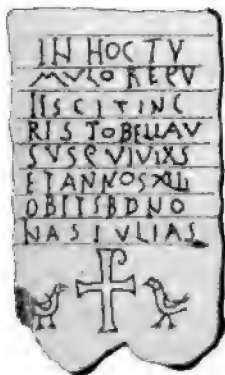 IN HOC TV
MVLO REQV
IISCIT IN C
RISTO BELLAV
SVS QVI VIXS
ET ANNOS XLI
OBIIT S B D NO
NAS IVLIAS